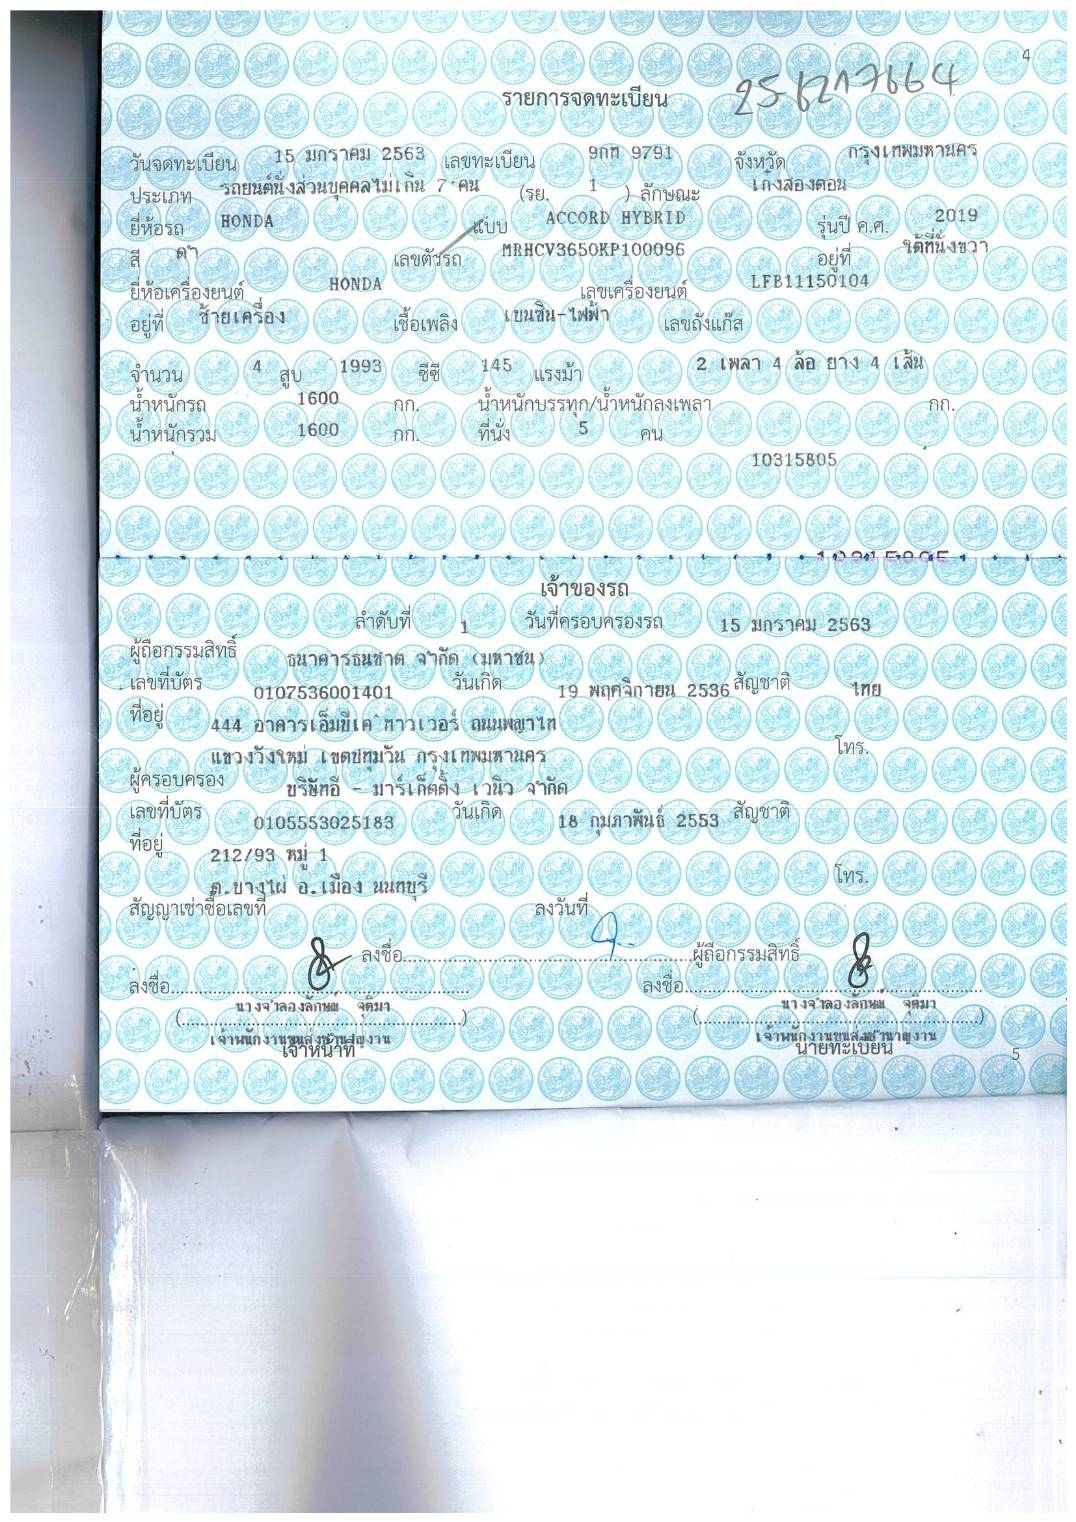 4
รายการจดทะเบียน
วันจดทะเบียน 15 มกราคม 2563 เลขทะเบียน 9กท 9791 จังหวัด กรุงเทพมหานคร
ประเภท รถยนต์นั่งส่วนบุคคลไม่เกิน 7 คน (รย. 1 ) ลักษณะ เก๋งสองตอน
ยี่ห้อรถ HONDA แบบ ACCORD HYBRID รุ่นปี ค.ศ. 2019
สี ดำ เลขตัวรถ MRHCV3650KP100096 อยู่ที่ ใต้ที่นั่งขวา
ยี่ห้อเครื่องยนต์ HONDA เลขเครื่องยนต์ LFB11150104
อยู่ที่ ซ้ายเครื่อง เชื้อเพลิง เบนซิน-ไฟฟ้า เลขถังแก๊ส
จำนวน 4 สูบ 1993 ซีซี 145 แรงม้า 2 เพลา 4 ล้อ ยาง 4 เส้น
น้ำหนักรถ 1600 กก. น้ำหนักบรรทุก/น้ำหนักลงเพลา กก.
น้ำหนักรวม 1600 กก. ที่นั่ง 5 คน
10315805
เจ้าของรถ
ลำดับที่ 1 วันที่ครอบครองรถ 15 มกราคม 2563
ผู้ถือกรรมสิทธิ์ ธนาคารธนชาต จำกัด (มหาชน)
เลขที่บัตร 0107536001401 วันเกิด 19 พฤศจิกายน 2536 สัญชาติ ไทย
ที่อยู่ 444 อาคารเอ็มบีเค ทาวเวอร์ ถนนพญาไท
แขวงวังใหม่ เขตปทุมวัน กรุงเทพมหานคร โทร.
ผู้ครอบครอง บริษัทอี - มาร์เก็ตติ้ง เวนิว จำกัด
เลขที่บัตร 0105553025183 วันเกิด 18 กุมภาพันธ์ 2553 สัญชาติ
ที่อยู่ 212/93 หมู่ 1
ต.บางไผ่ อ.เมือง นนทบุรี โทร.
สัญญาเช่าซื้อเลขที่ ลงวันที่
ลงชื่อ ผู้ถือกรรมสิทธิ์
ลงชื่อ ลงชื่อ
(นางจำลองลักษณ์ จุติมา) (นางจำลองลักษณ์ จุติมา)
เจ้าพนักงานขนส่งชำนาญงาน เจ้าพนักงานขนส่งชำนาญงาน
เจ้าหน้าที่ นายทะเบียน
5